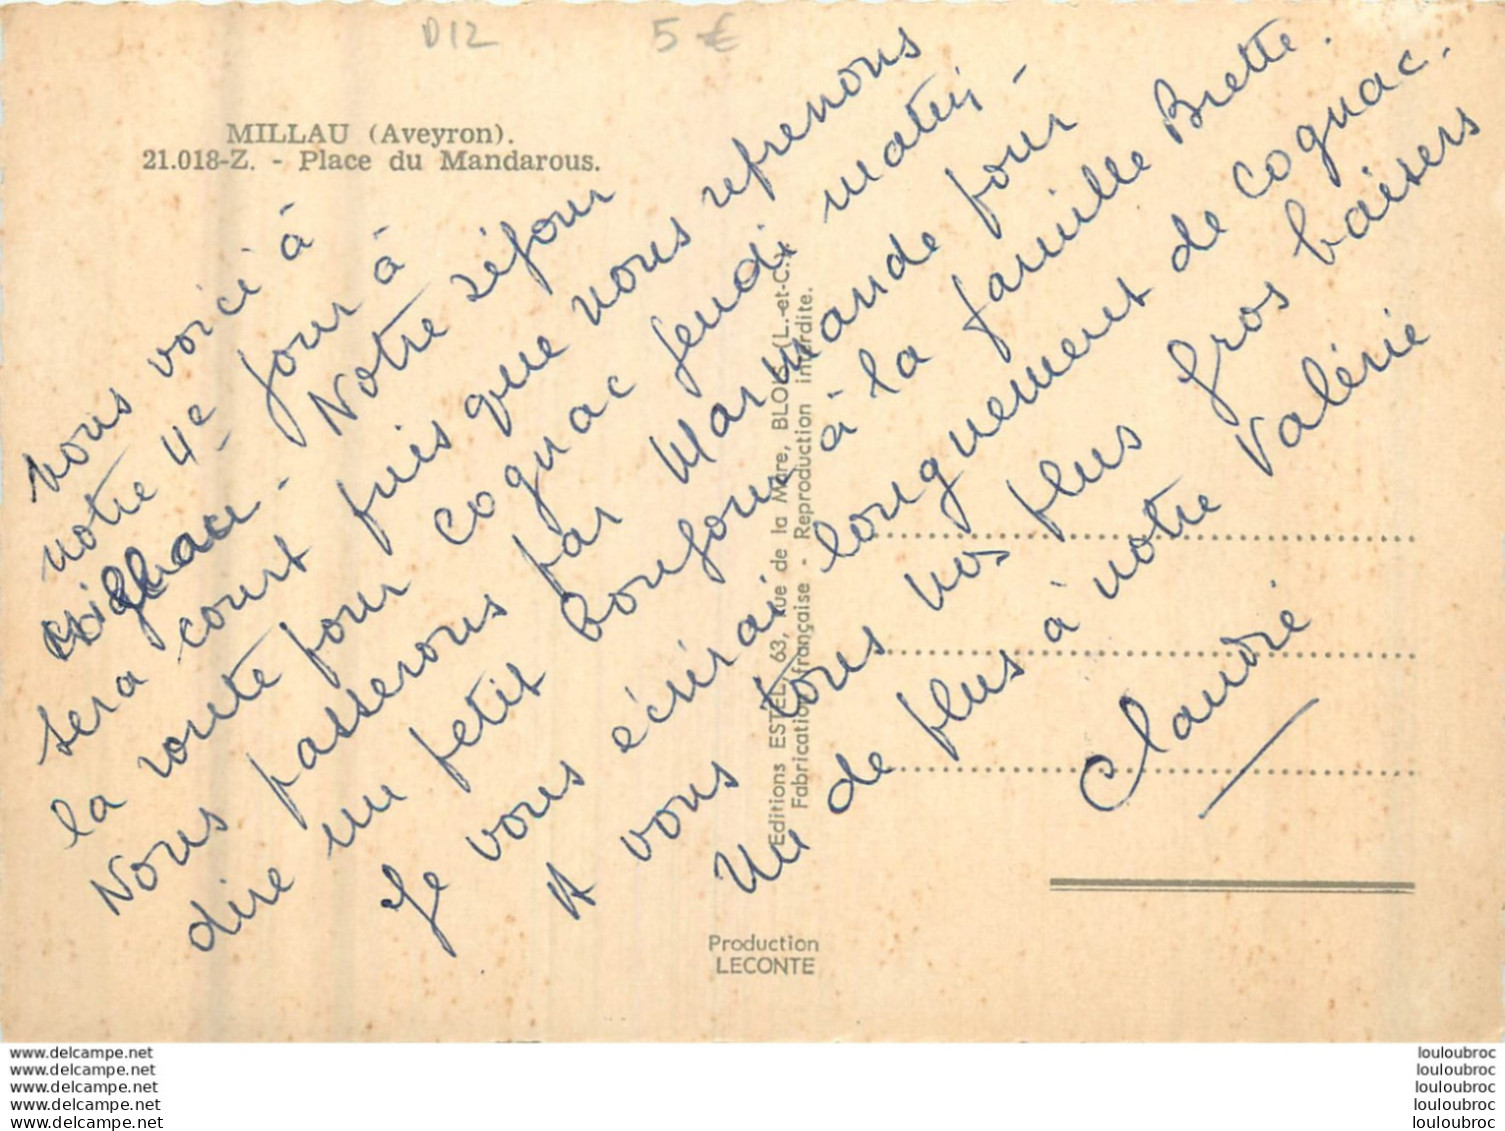 D12
5 €
MILLAU (Aveyron).
21.018-Z. - Place du Mandarous.
Nous voici à
notre 4e jour à
. Notre séjour
sera court puis que nous reprenons
la route pour Cognac jeudi matin -
Nous passerons par Marmande pour
dire un petit bonjour à la famille Brette.
Je vous écrirai longuement de Cognac.
A vous tous nos plus gros baisers
Un de plus à notre Valérie
Claudie
Editions ESTEL, 63, rue de la Mare, BLOIS (L.-et-C.)
Fabrication française - Reproduction interdite.
Production
LECONTE
www.delcampe.net
www.delcampe.net
www.delcampe.net
www.delcampe.net
www.delcampe.net
louloubroc
louloubroc
louloubroc
louloubroc
louloubroc